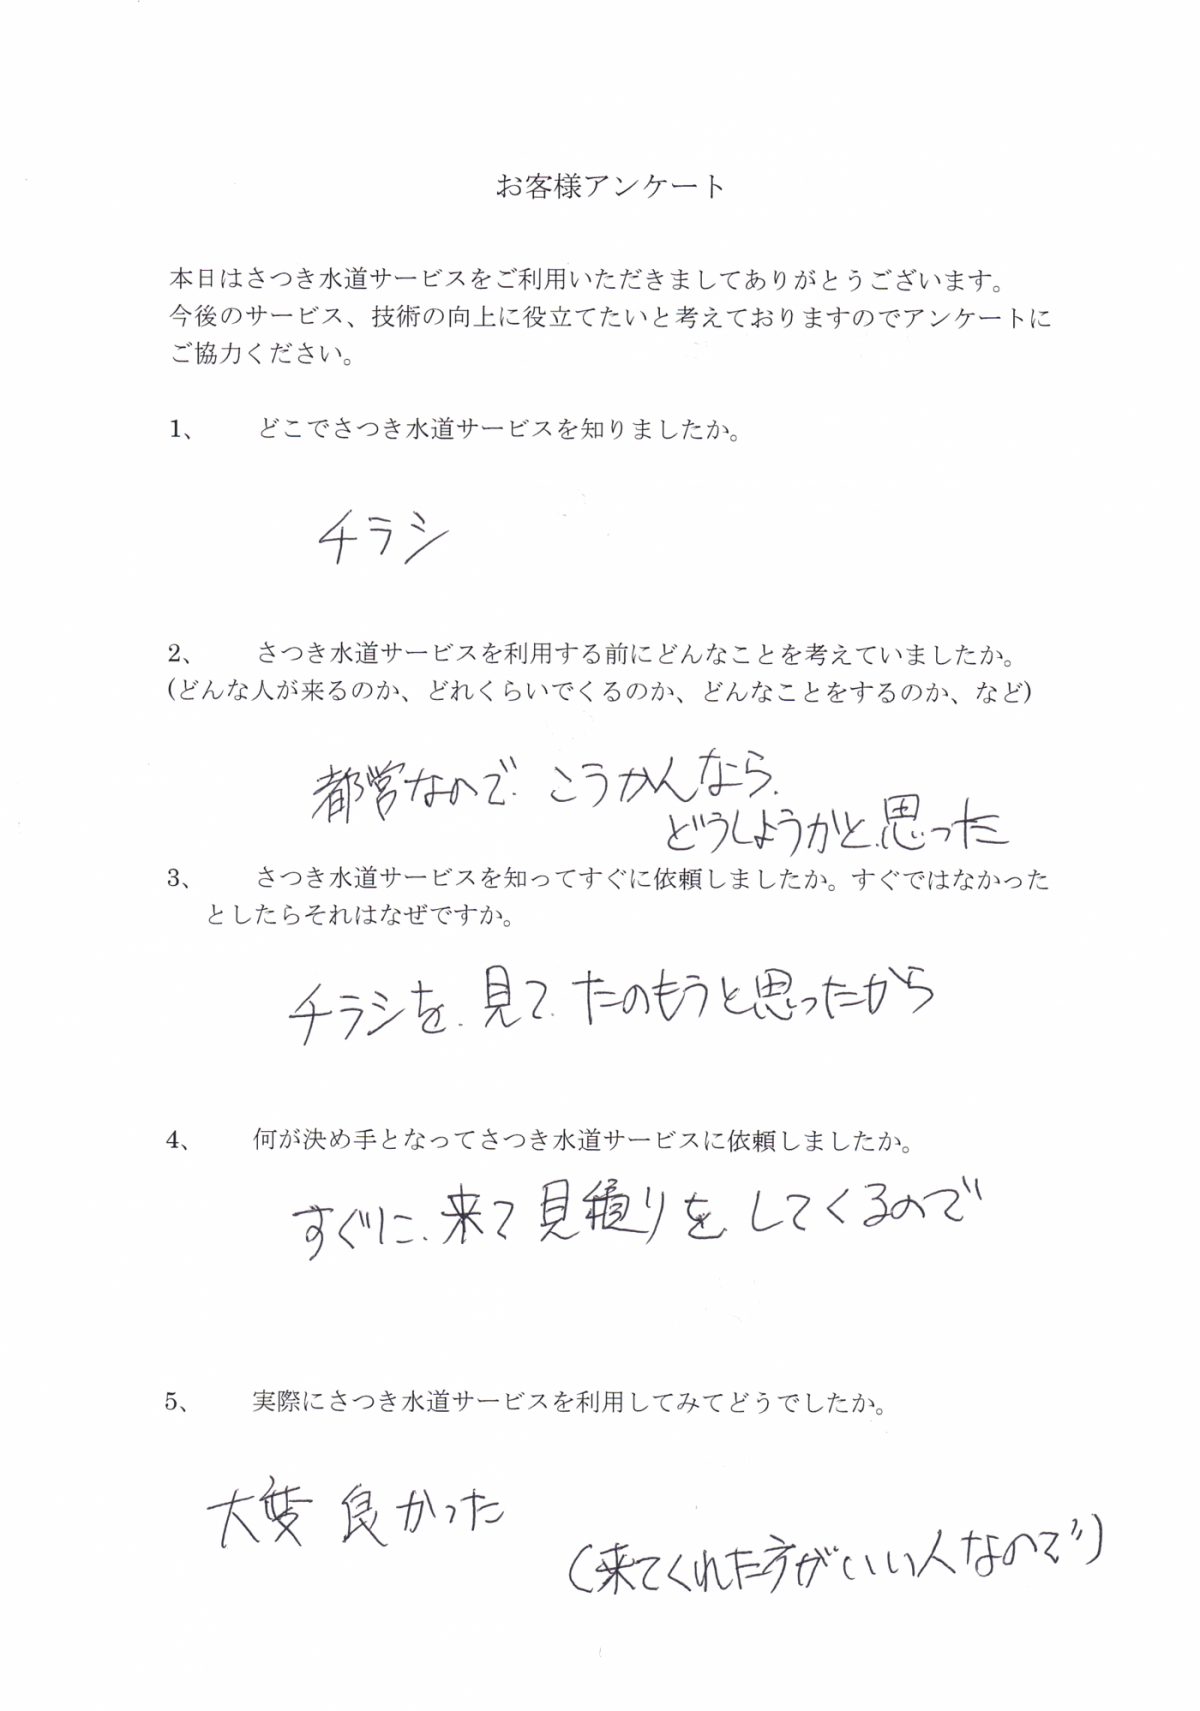 お客様アンケート
本日はさつき水道サービスをご利用いただきましてありがとうございます。
今後のサービス、技術の向上に役立てたいと考えておりますのでアンケートに
ご協力ください。
1、 どこでさつき水道サービスを知りましたか。
チラシ
2、 さつき水道サービスを利用する前にどんなことを考えていましたか。
(どんな人が来るのか、どれくらいでくるのか、どんなことをするのか、など)
都営なので こうかんなら
どうしようかと思った
3、 さつき水道サービスを知ってすぐに依頼しましたか。すぐではなかった
としたらそれはなぜですか。
チラシを見て たのもうと思ったから
4、 何が決め手となってさつき水道サービスに依頼しましたか。
すぐに来て見積りをしてくるので
5、 実際にさつき水道サービスを利用してみてどうでしたか。
大変良かった
(来てくれた方がいい人なので)